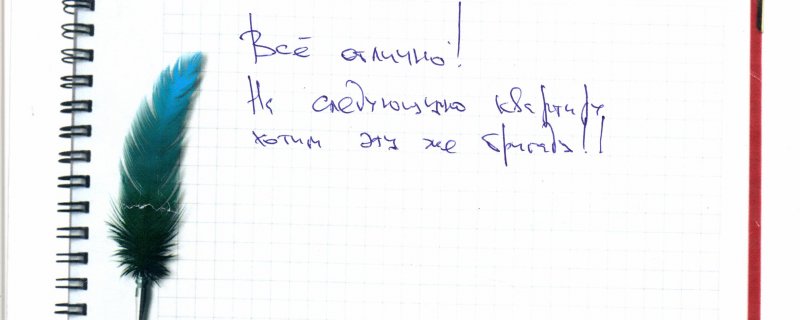 Всё отлично!
На следующую квартиру
хотим эту же бригаду!!